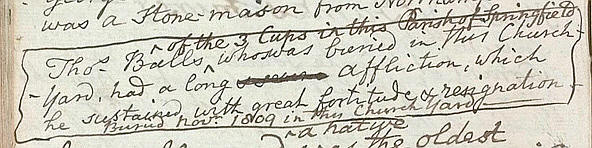 was a Stone-mason from Norman
of the 3 Cups in this Parish of Springfield
Thos. Balls, who was buried in this Church-
Yard, had a long affliction, which
he sustained with great fortitude & resignation.
Buried Novr. 1809 in this Church Yard
a native
was the oldest